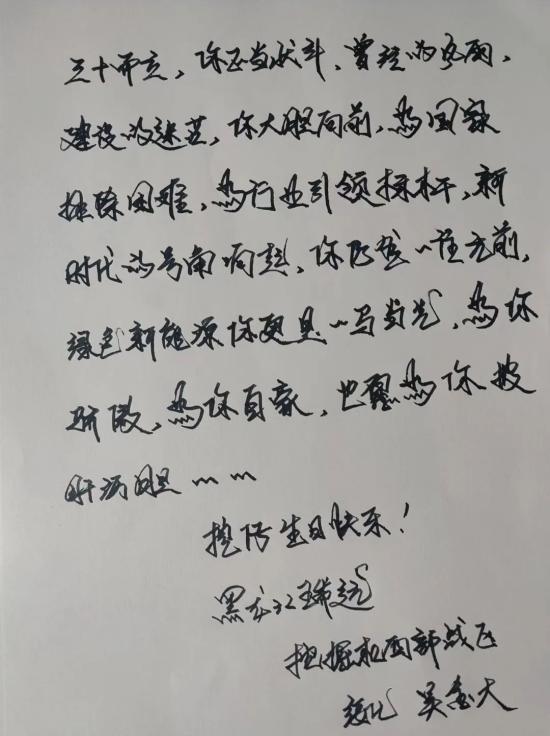 三十而立，你正当状斗，曾经的风雨，
建设的迷茫，你大胆向前，为国家
排除困难，为行业引领标杆，新
时代的号角响起，你依然一往无前，
绿色新能源你更是一马当先，为你
骄傲，为你自豪，也愿为你披
肝沥胆……
祝你生日快乐！
黑龙江瑞远
挖掘机西部战区
吴金大